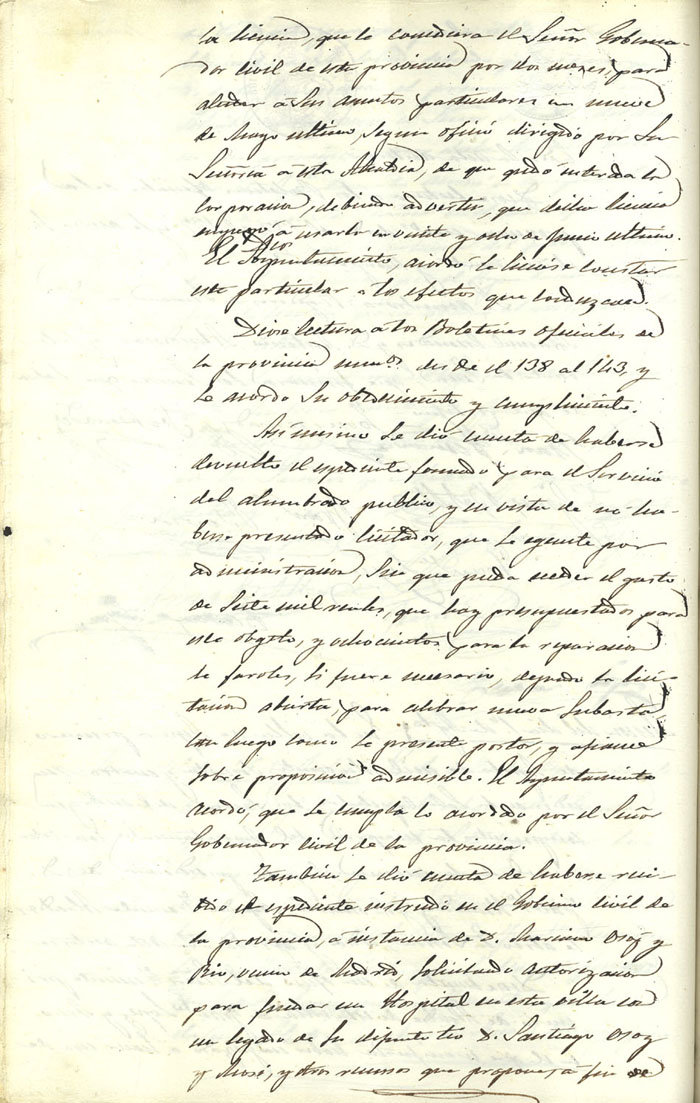 la licencia, que le concediera el Señor Goberna-
dor civil de esta provincia por dos meses, para
atender a sus asuntos particulares en nueve
de Mayo ultimo, segun oficio dirigido por Su
Señoria á esta Alcaldia, de que quedó enterada la
Corporacion, debiendo advertir, que dicha licencia
empezó á usarla en veinte y ocho de Junio ultimo.
El Ayuntamiento, acordó se hiciese constar
este particular a los efectos que conduzcan.
Diose lectura a los Boletines oficiales de
la provincia numos. desde el 138 al 143, y
se acordo su obedecimiento y cumplimiento.
Asimismo se dió cuenta de haberse
devuelto el espediente formado para el Servicio
del alumbrado publico, y en vista de no ha-
berse presentado licitador, que se egecute por
administracion, sin que pueda esceder el gasto
de siete mil reales, que hay presupuestados para
este obgeto, y ochocientos para la reparacion
de faroles, si fuere necesario, dejando la lici-
tacion abierta, para celebrar nueva subasta
tan luego como se presente postor, y afiance
sobre proposicion admisible. El Ayuntamiento
acordó, que se cumpla lo acordado por el Señor
Gobernador civil de la provincia.
Tambien se dió cuenta de haberse reci-
bido el espediente instruido en el Gobierno civil de
la provincia, a instancia de D. Mariano Osoz y
Rio, vecino de Madrid, solicitando autorizacion
para fundar un Hospital en esta villa con
un legado de su difunto tio D. Santiago Osoz
y Mosé, y otros recursos que propone, a fin de